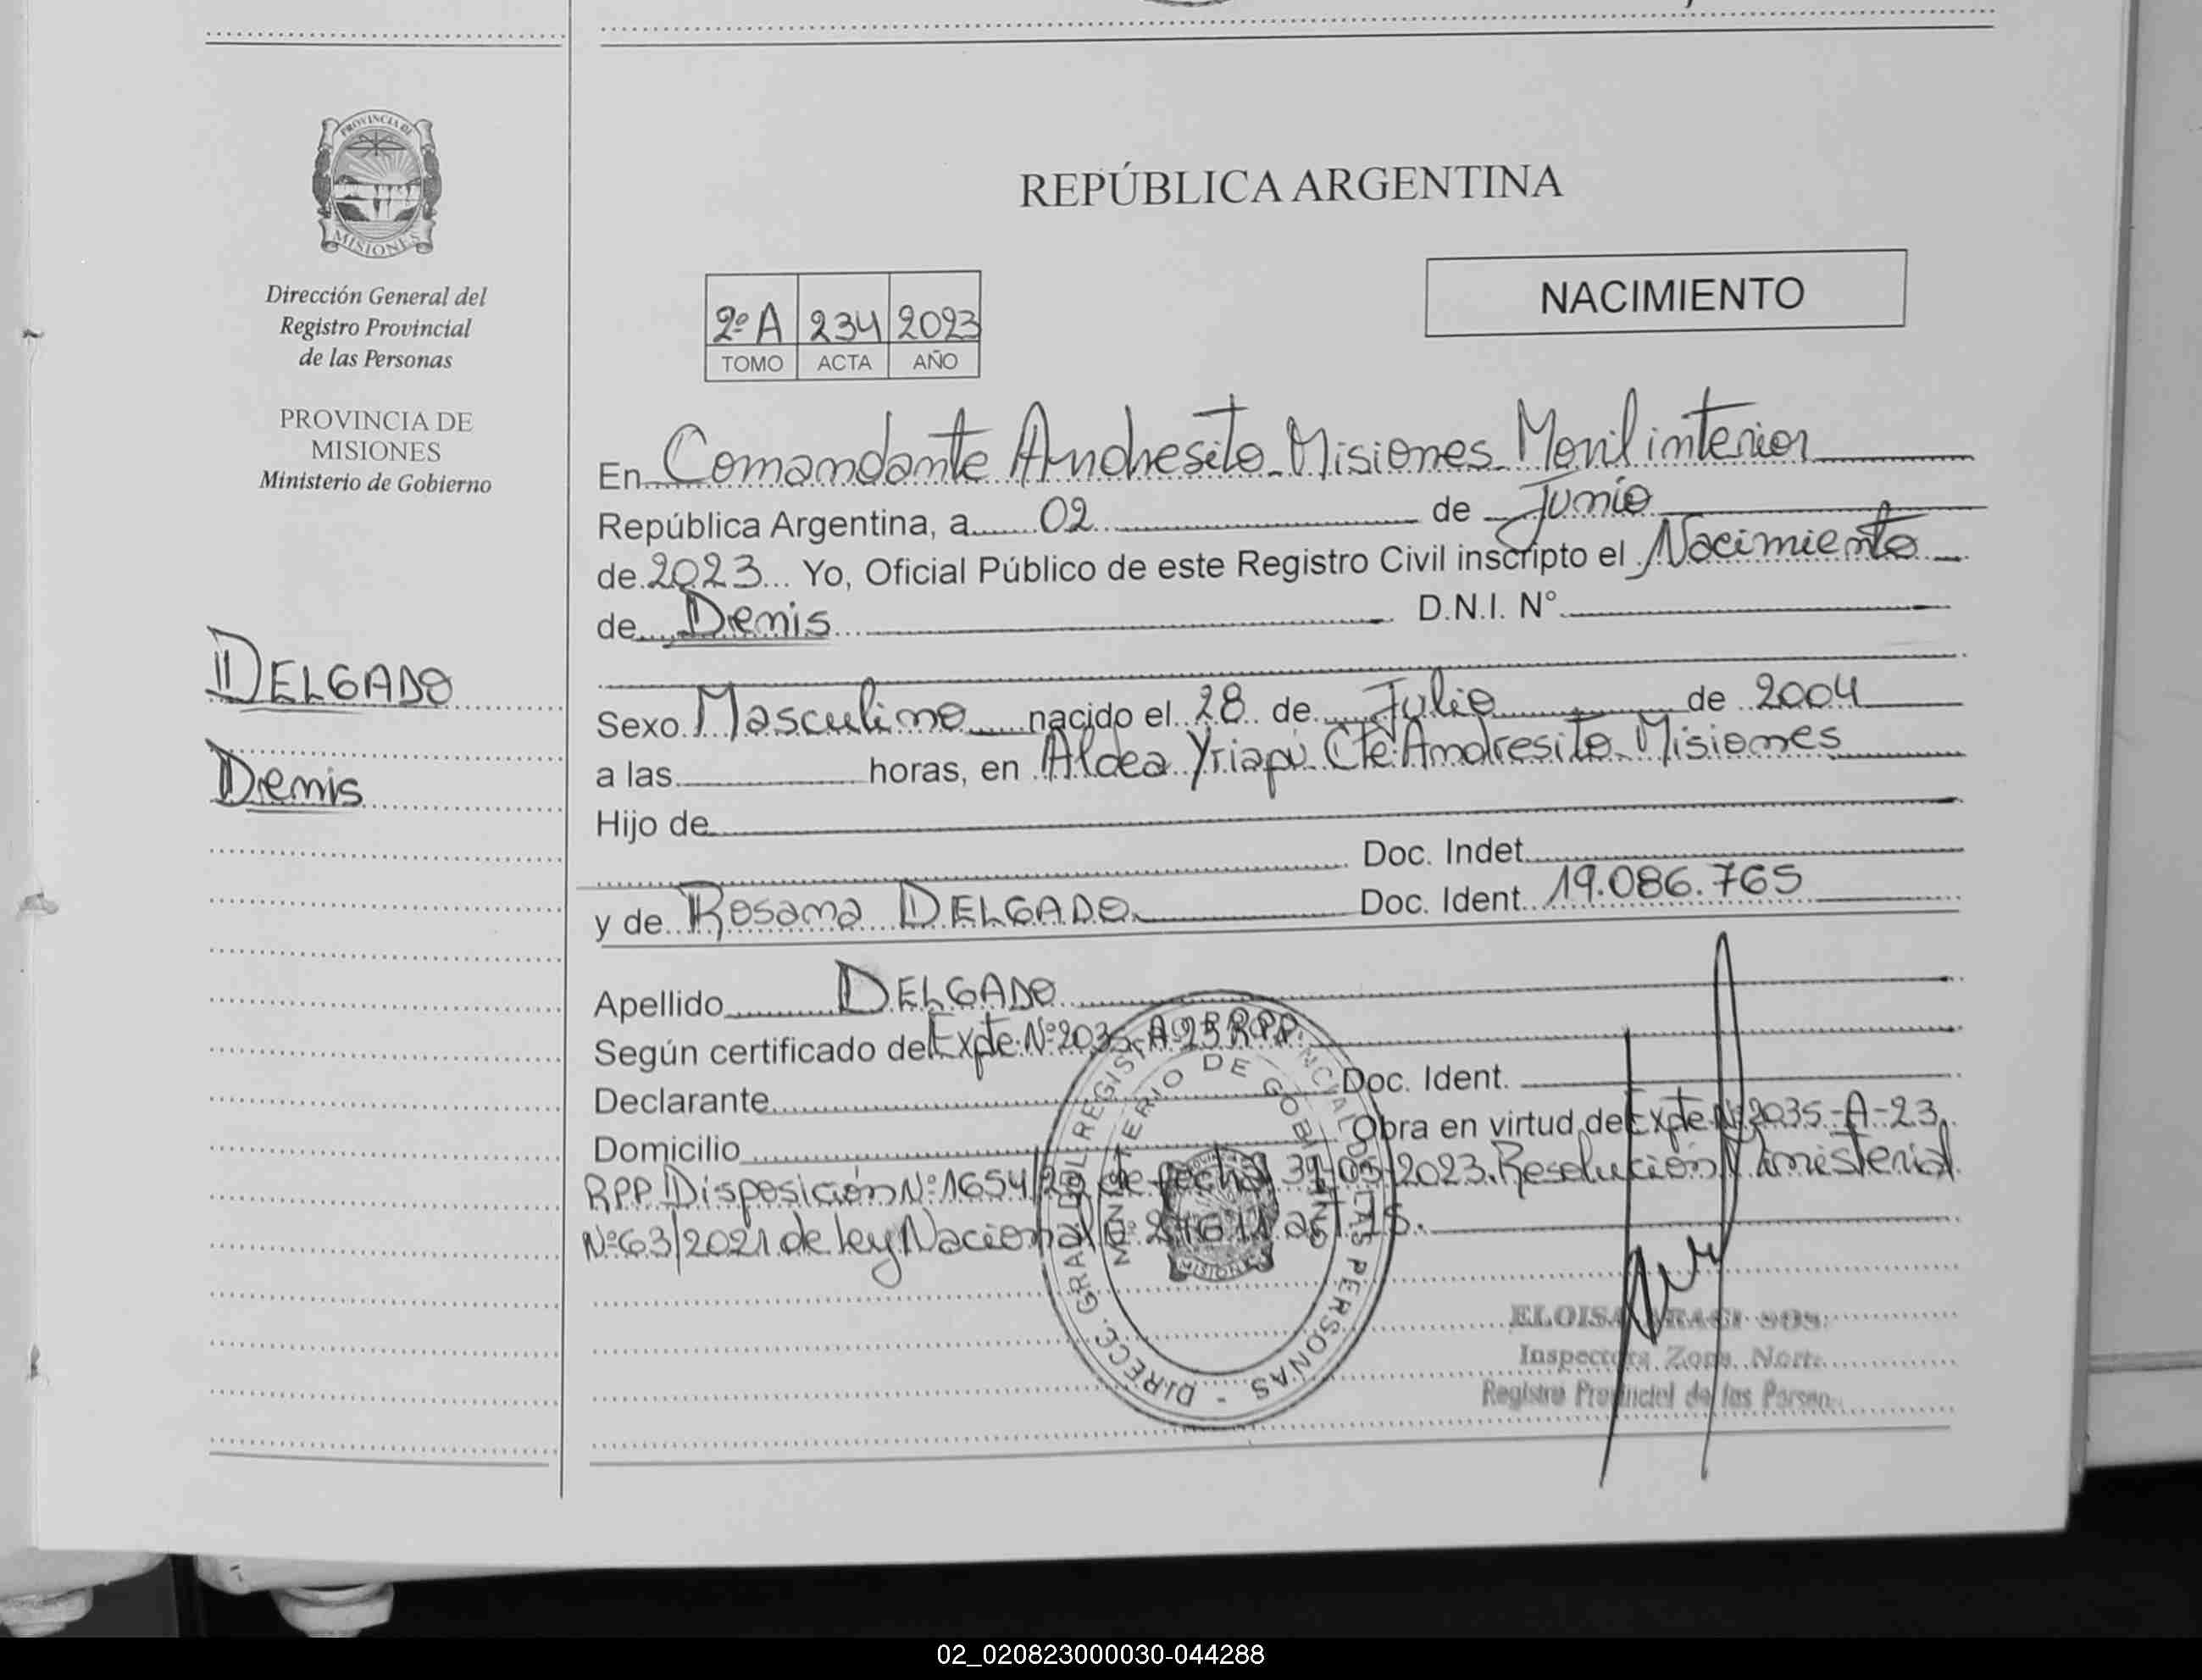 PROVINCIA DE
MISIONES
Dirección General del
Registro Provincial
de las Personas
PROVINCIA DE
MISIONES
Ministerio de Gobierno
DELGADO
Denis
REPÚBLICA ARGENTINA
NACIMIENTO
2º A 234 2023
TOMO ACTA AÑO
En Comandante Andresito Misiones Movil interior
República Argentina, a 02 de Junio
de 2023 Yo, Oficial Público de este Registro Civil inscripto el Nacimiento
de Denis D.N.I. N°
Sexo Masculino nacido el 28 de Julio de 2004
a las horas, en Aldea Yriapú Cte. Andresito Misiones
Hijo de
Doc. Indet.
y de Rosana DELGADO Doc. Ident. 19.086.765
Apellido DELGADO
Según certificado del Expte. Nº 2035-A-23 RPP.
Declarante Doc. Ident.
Domicilio Obra en virtud de Expte Nº 2035-A-23
RPP. Disposición Nº 1654/ de fecha 31-05-2023. Resolución Ministerial
Nº 63/2021 de ley Nacional art. 15.
DIRECC. GRAL. DEL REGISTRO PROVINCIAL DE LAS PERSONAS -
MINISTERIO DE GOBIERNO
MISIONES
ELOISA
Inspectora Zona Norte
Registro Provincial de las Person
02_020823000030-044288